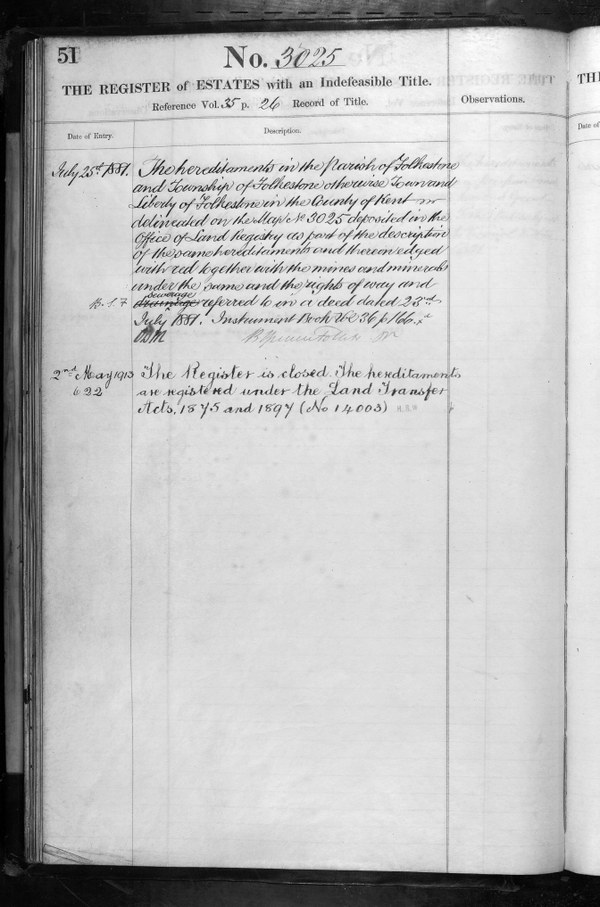 51
No. 3025
THE REGISTER of ESTATES with an Indefeasible Title.
Reference Vol. 35 p. 26 Record of Title.
Observations.
Date of Entry.
Description.
July 25th 1881. The hereditaments in the Parish of Folkestone
and Township of Folkestone otherwise Town and
Liberty of Folkestone in the County of Kent
delineated on the Map No 3025 deposited in the
Office of Land Registry as part of the description
of the same hereditaments and thereon edged
with red together with the mines and minerals
under the same and the rights of way and
sewerage
drainage referred to in a deed dated 23rd
July 1881. Instrument Book Vol 36 p 166.
2nd May 1913 The Register is closed. The hereditaments
622 are registered under the Land Transfer
Acts, 1875 and 1897 (No 14003)
TH
Date of